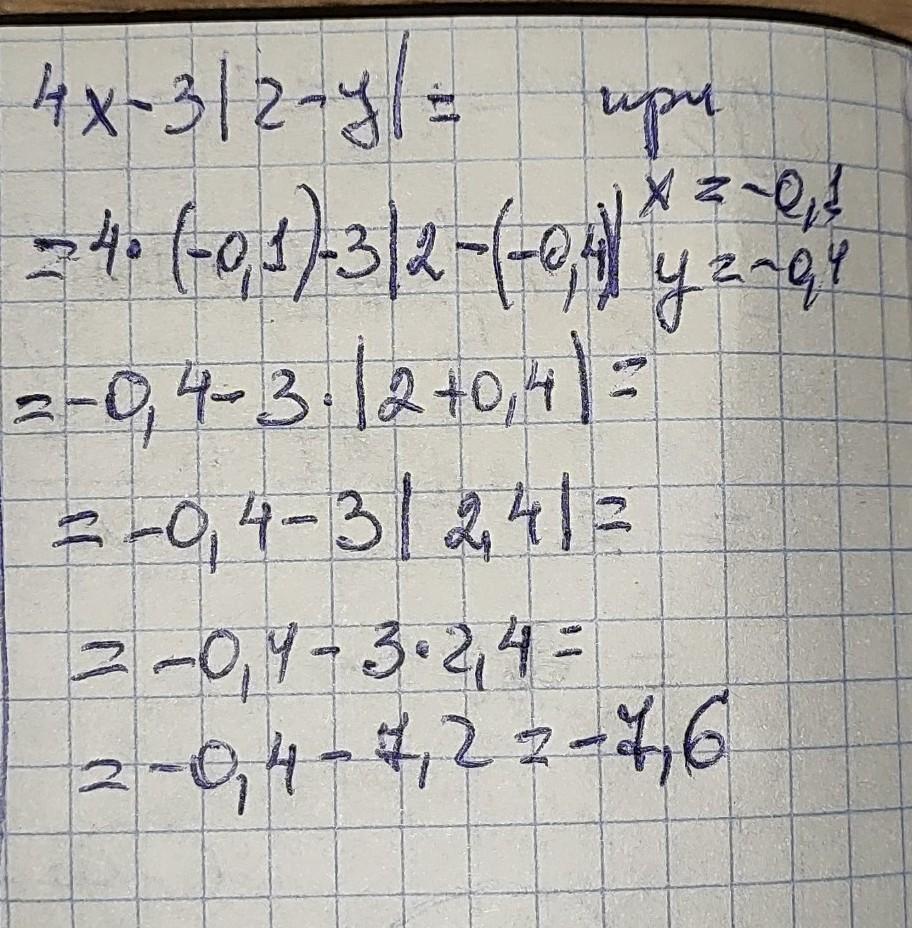 4x-3|2-y|= при
x=-0,1
=4·(-0,1)-3|2-(-0,4)| y=-0,4
=-0,4-3·|2+0,4|=
=-0,4-3|2,4|=
=-0,4-3·2,4=
=-0,4-7,2=-7,6